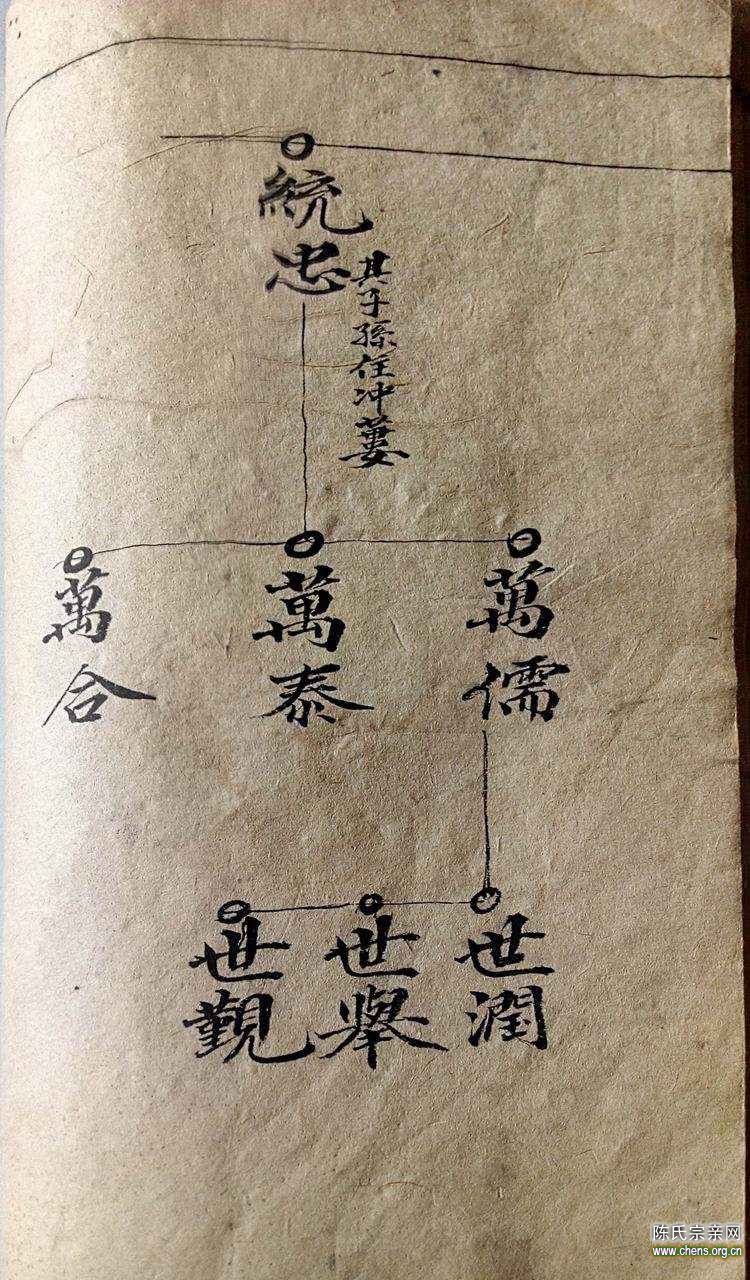 統忠
其子孫住冲蔞
萬儒
萬泰
萬合
世潤
世舉
世覲
陈氏宗亲网
www.chens.org.cn